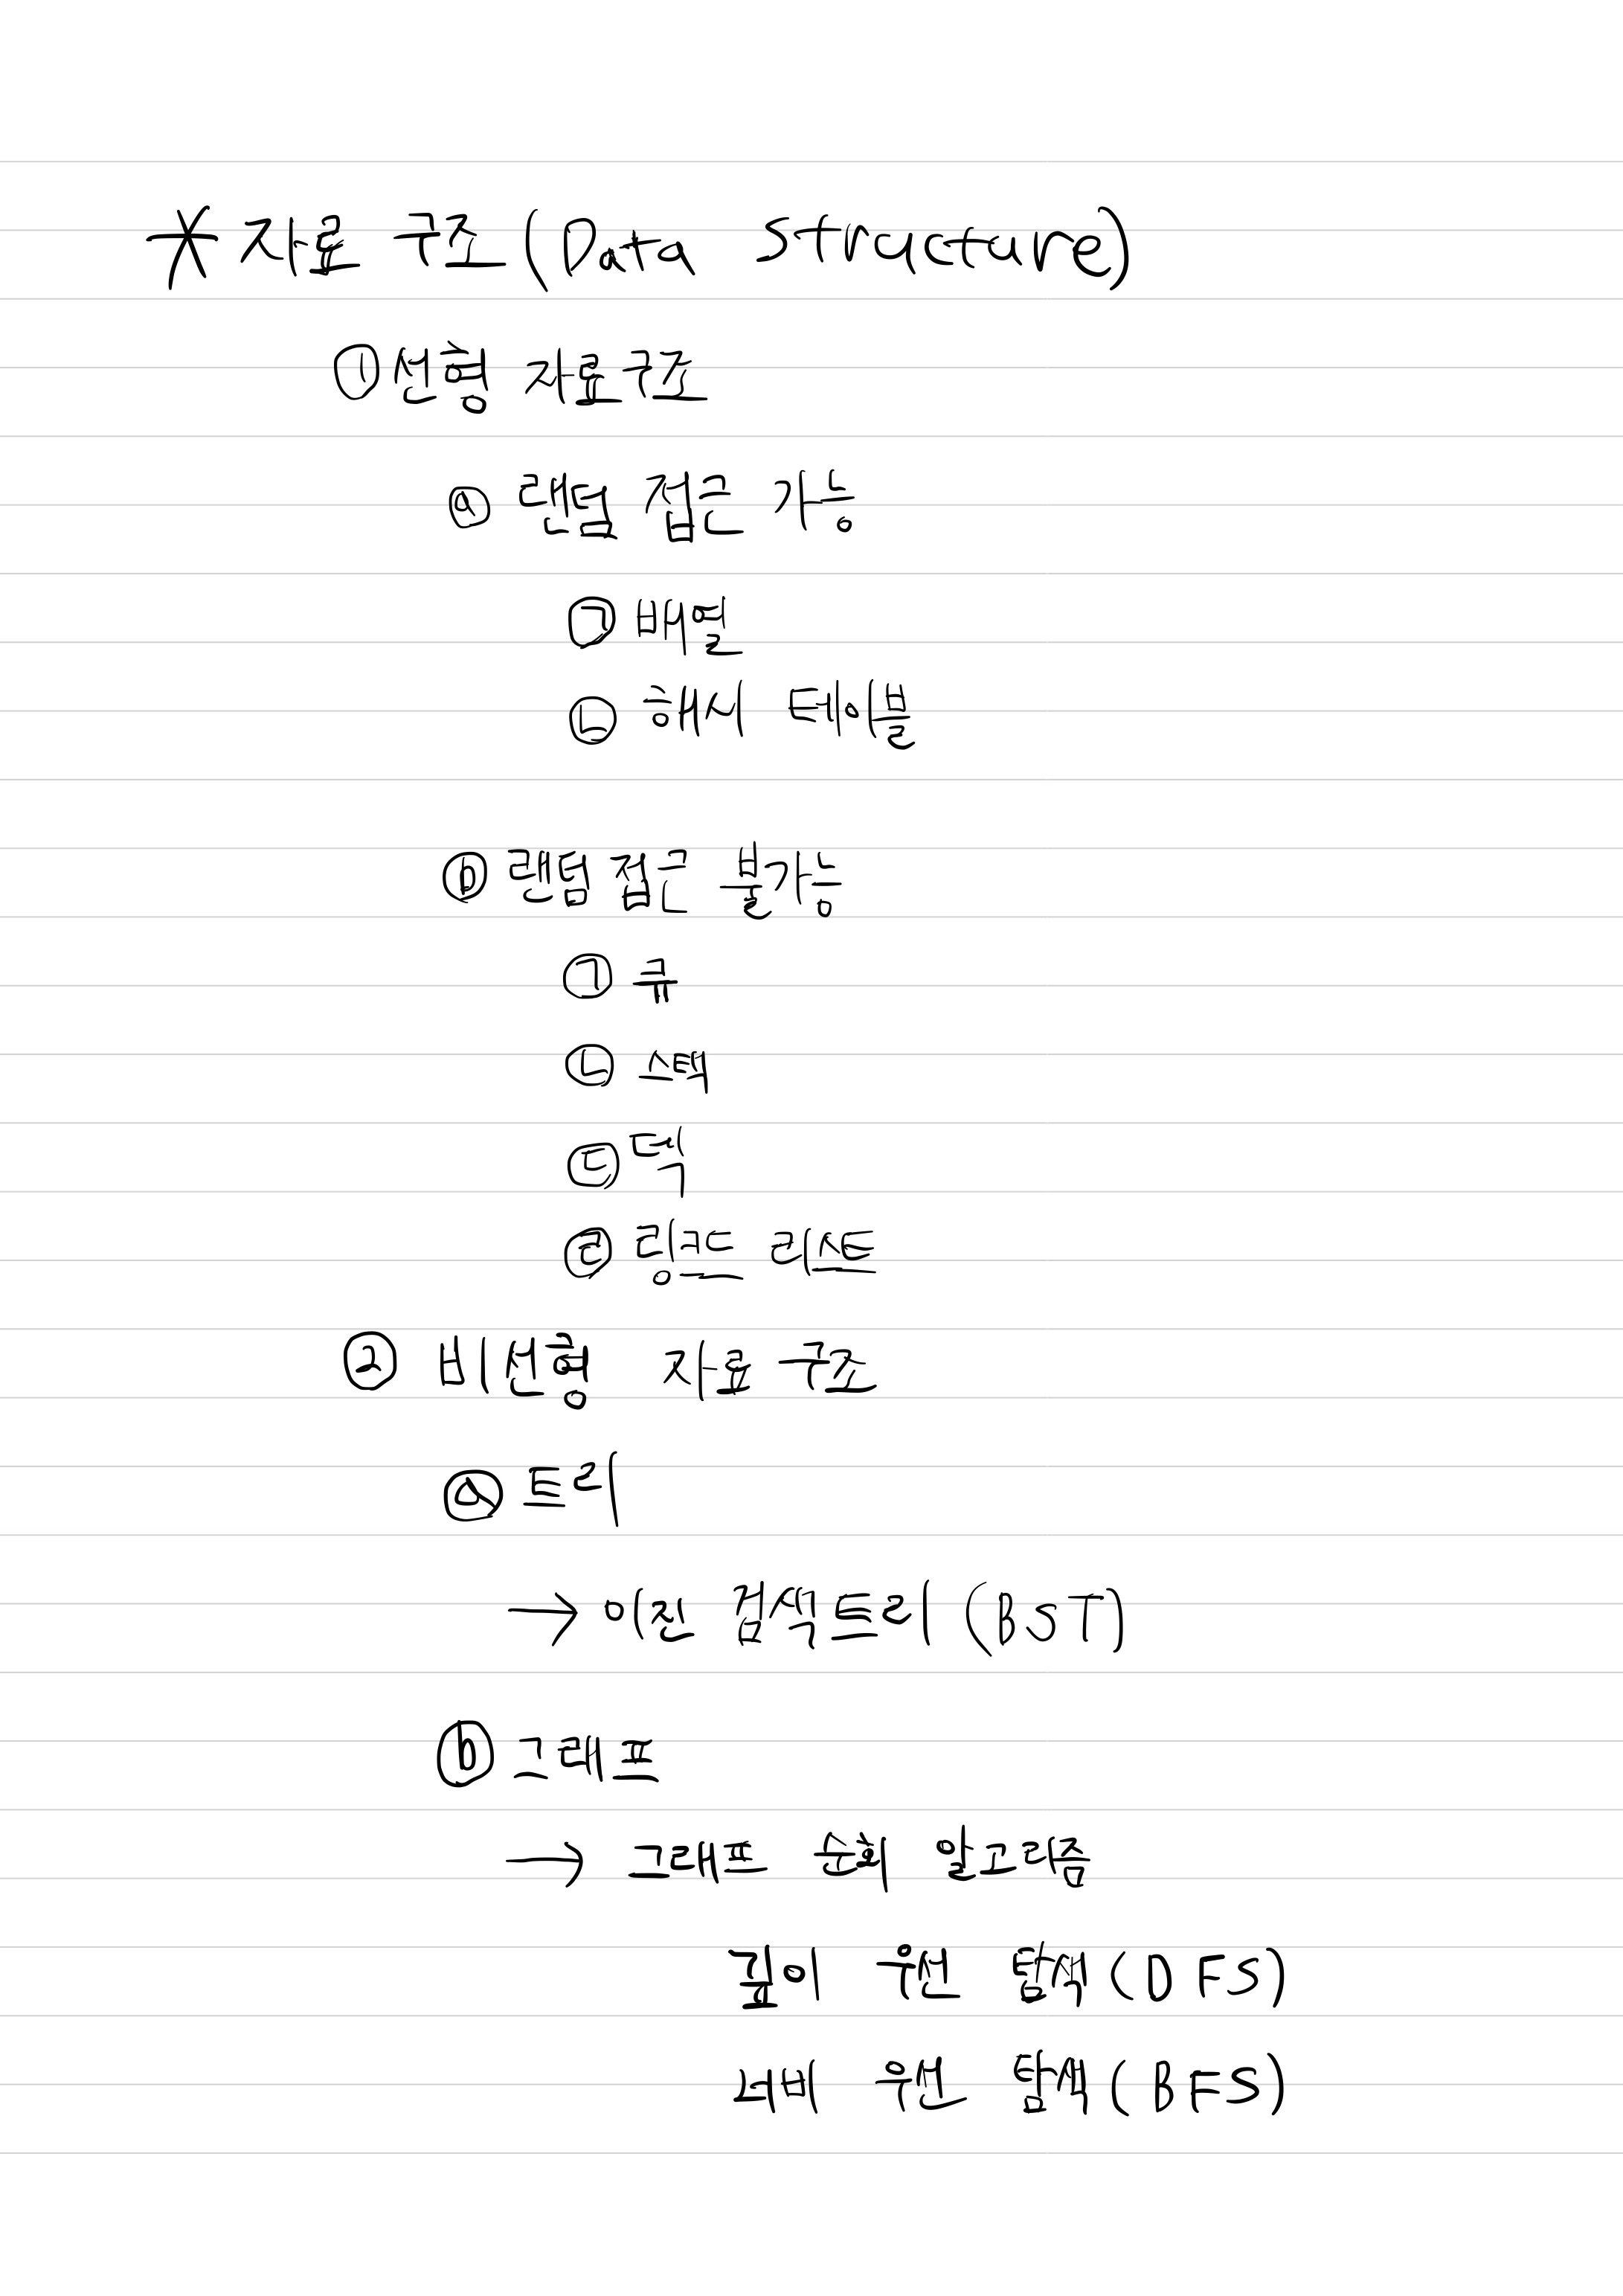 * 자료 구조(Data Structure)
① 선형 자료구조
ⓐ 랜덤 접근 가능
㉠ 배열
㉡ 해시 테이블
ⓑ 랜덤 접근 불가능
㉠ 큐
㉡ 스택
㉢ 덱
㉣ 링크드 리스트
② 비선형 자료 구조
ⓐ 트리
→ 이진 검색트리 (BST)
ⓑ 그래프
→ 그래프 순회 알고리즘
깊이 우선 탐색(DFS)
너비 우선 탐색(BFS)